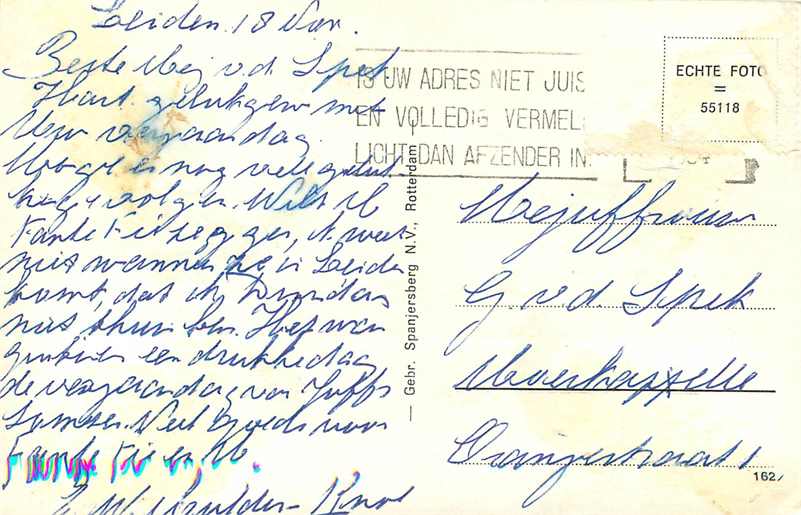 Leiden 18 Nov.
Beste Mej v.d. Spek
Hart. gelukgew met
Uw verjaardag.
Mooge er nog vele geluk
kige volgen. Wilt U
Tante Fie zeggen, ik weet
niet wanneer ze in Leiden
komt, dat ik Donderdag
niet thuis ben. Heef van
een drukke dag
de verjaardag van Juffr
Veel Goeds voor
Tante Fie en U.
IS UW ADRES NIET JUIS
EN VOLLEDIG VERMEL
LICHT DAN AFZENDER IN.
ECHTE FOTO
=
55118
— Gebr. Spanjersberg N.V., Rotterdam
Mejuffrouw
G. v.d. Spek
Moerkapelle
Oranjestraat 1
162